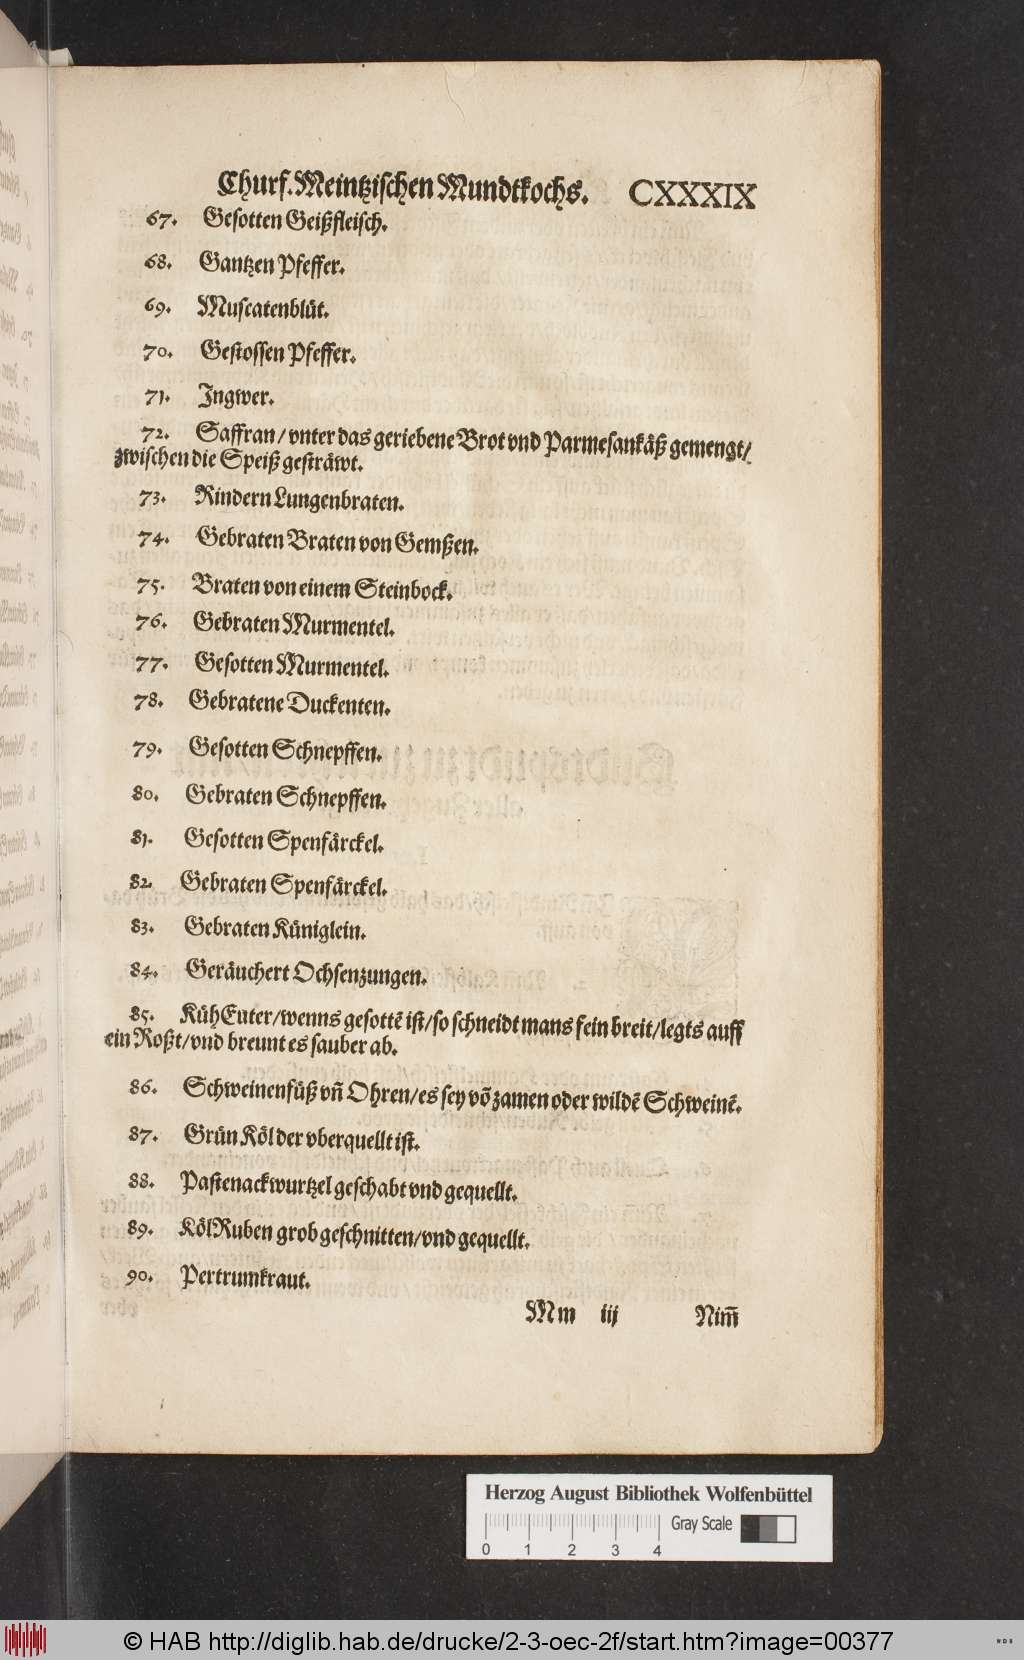 Churf. Meintzischen Mundtkochs. CXXXIX
67. Gesotten Geißfleisch.
68. Gantzen Pfeffer.
69. Muscatenblüt.
70. Gestossen Pfeffer.
71. Ingwer.
72. Saffran / vnter das geriebene Brot vnd Parmesankäß gemengt /
zwischen die Speiß gesträwt.
73. Rindern Lungenbraten.
74. Gebraten Braten von Gemßen.
75. Braten von einem Steinbock.
76. Gebraten Murmentel.
77. Gesotten Murmentel.
78. Gebratene Duckenten.
79. Gesotten Schnepffen.
80. Gebraten Schnepffen.
81. Gesotten Spenfärckel.
82. Gebraten Spenfärckel.
83. Gebraten Küniglein.
84. Geräuchert Ochsenzungen.
85. Küh Euter / wenns gesottē ist / so schneidt mans fein breit / legts auff
ein Roßt / vnd breunt es sauber ab.
86. Schweinenfüß vñ Ohren / es sey võ zamen oder wildē Schweinē.
87. Grün Köl der vberquellt ist.
88. Pastenackwurtzel geschabt vnd gequellt.
89. Köl Ruben grob geschnitten / vnd gequellt.
90. Pertrumkraut.
Mm iij Nim̄
Herzog August Bibliothek Wolfenbüttel
Gray Scale
0 1 2 3 4
© HAB http://diglib.hab.de/drucke/2-3-oec-2f/start.htm?image=00377